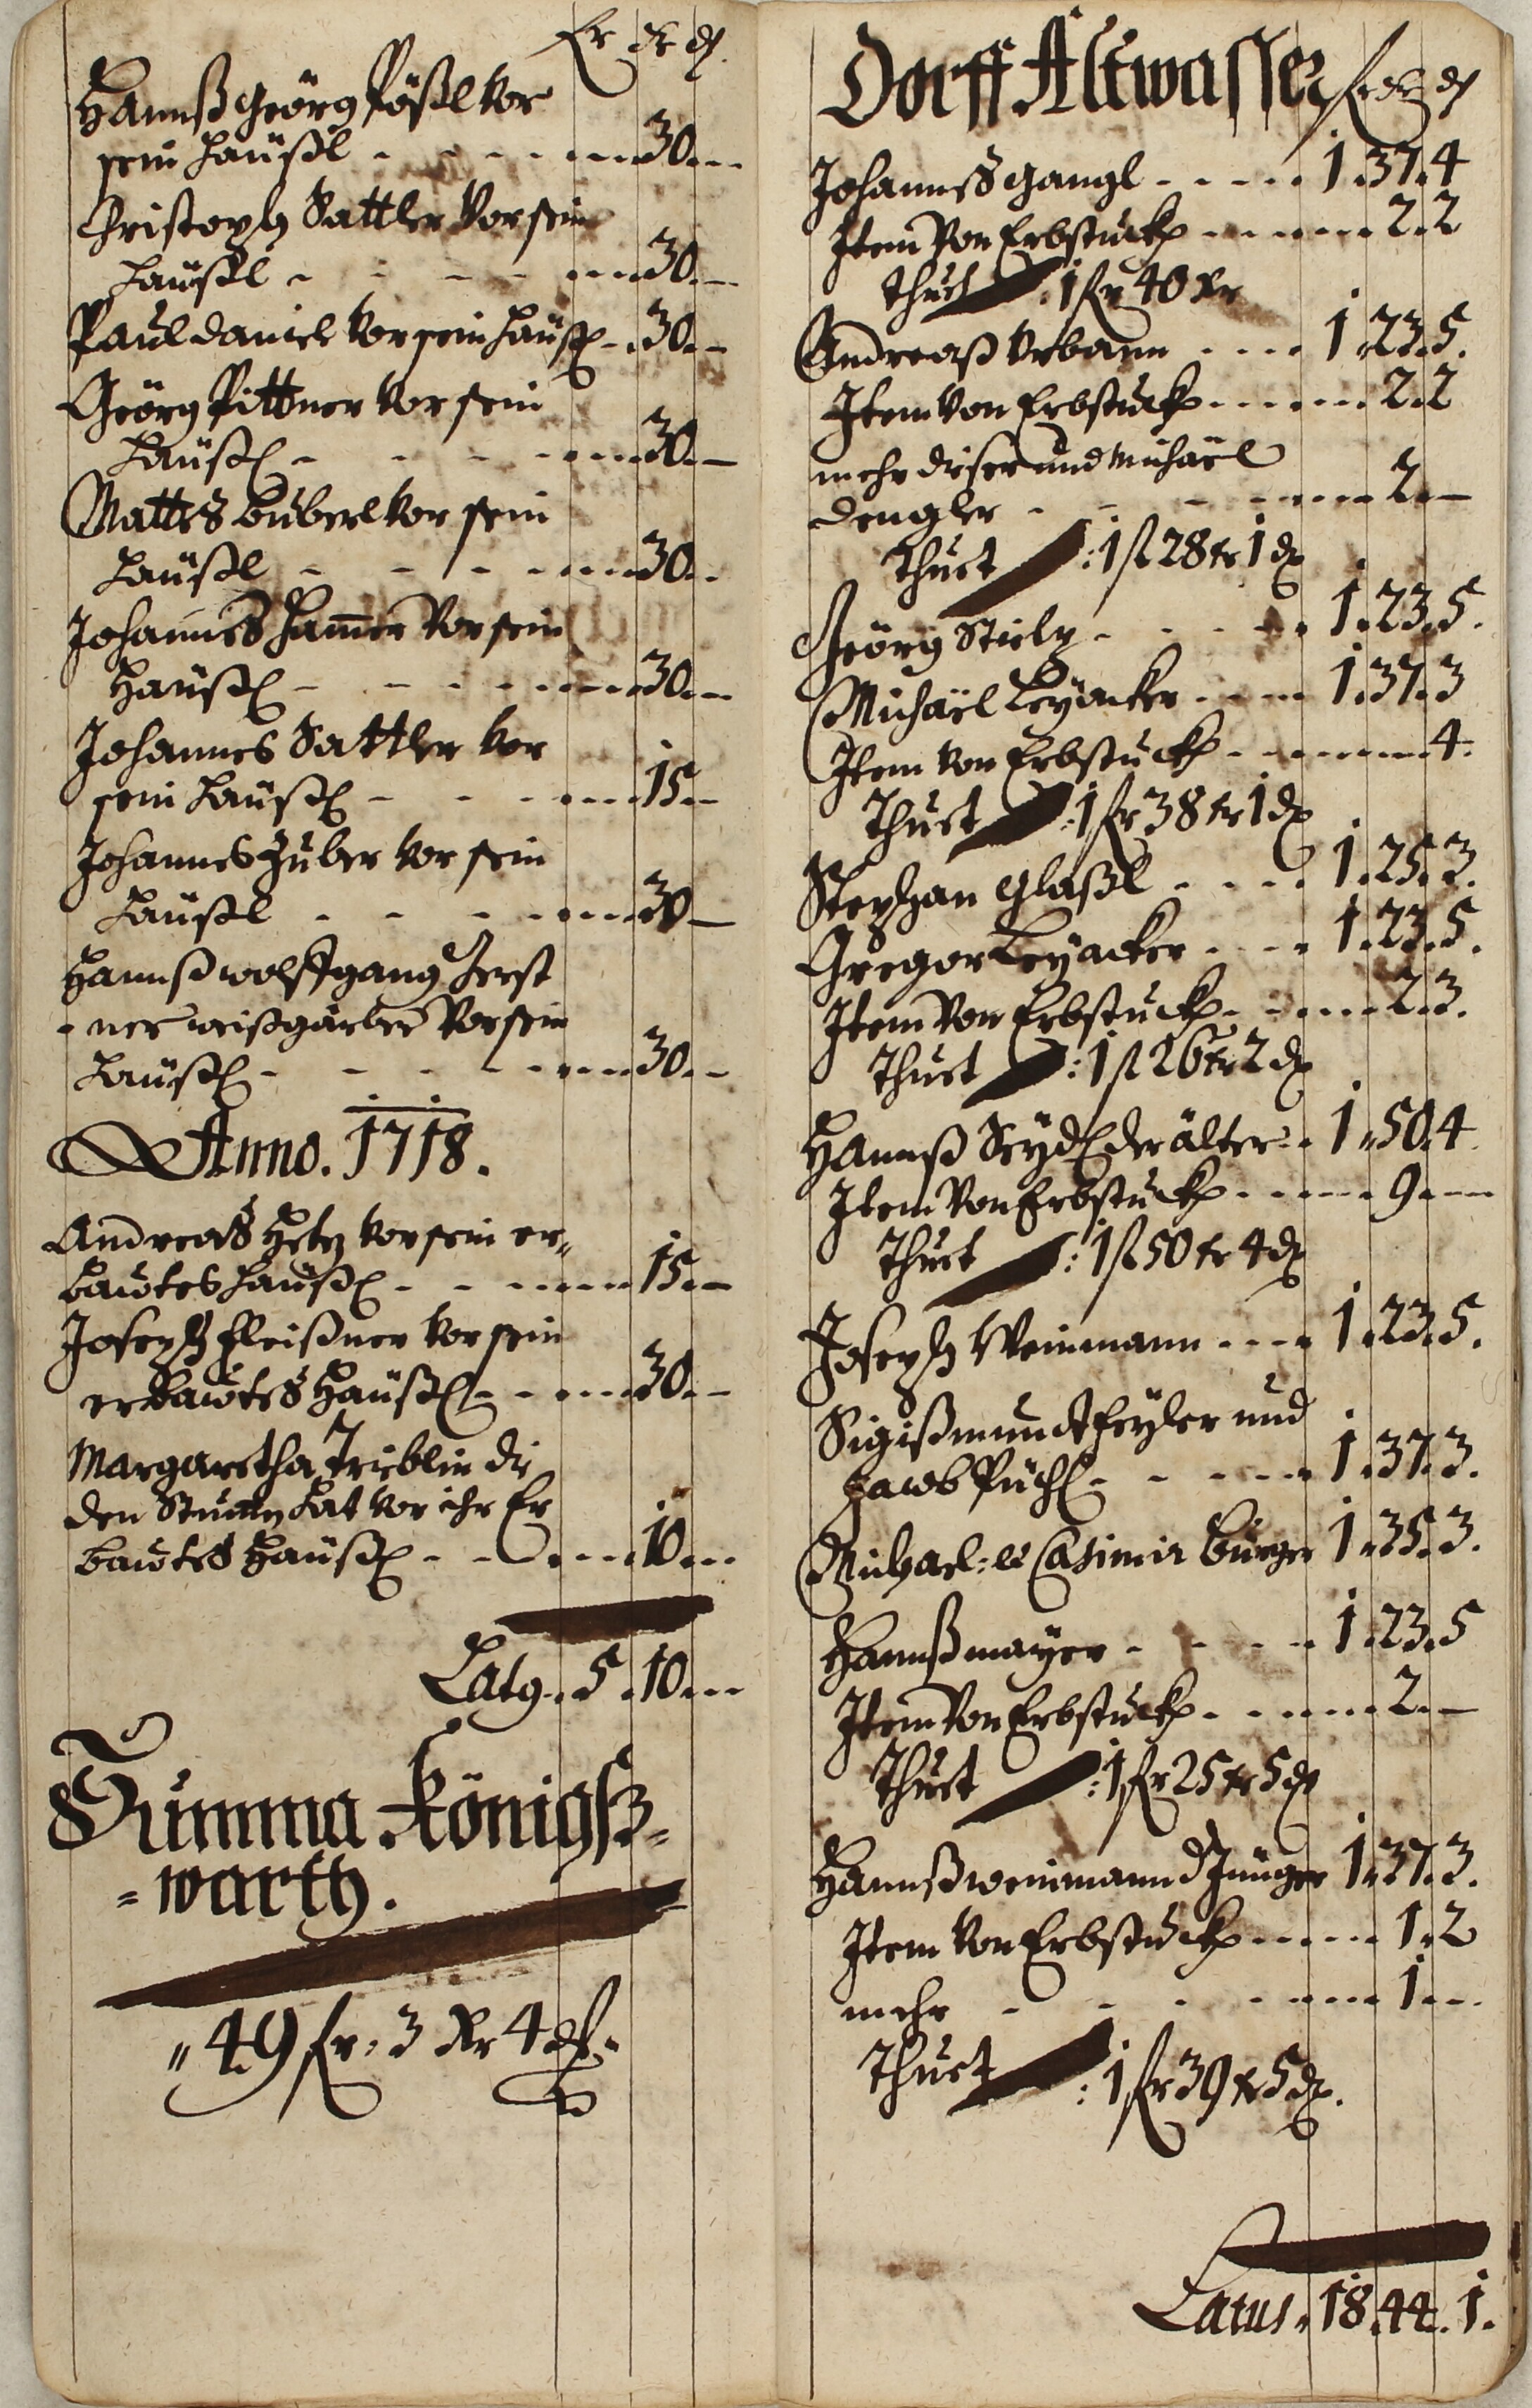 fr xr ₰
Hannß Geörg Pößl vor
sein Häußl - - - - - - 30 - -
Christoph Sattler vor sein
Häußl - - - - - - 30 - -
Paul Daniel vor sein Häußl - - 30 - -
Geörg Pittner vor sein
Häußl - - - - - - 30 - -
Mattes Buberl vor sein
Häußl - - - - - - 30 - -
Johannes Hamer vor sein
Häußl - - - - - - 30 - -
Johannes Sattler vor
sein Häußl - - - - - - 15 - -
Johannes Huber vor sein
Häußl - - - - - - 30 - -
Hannß Wolffgang Zerst
- ner weißgärber vor sein
Häußl - - - - - - 30 - -
Anno. 1718.
Andreas Hetz vor sein er-
bautes Häußl - - - - - 15 - -
Joseph Fleißner vor sein
erbautes Häußl - - - - 30 - -
Margaretha Trieblin die
den hat vor ihr Er
bautes Häußl - - - - 10 - -
Latg. 5. 10 - -
Summa Königß-
=warth.
" 49 fr: 3 xr 4 ₰.
Dorff Altwasser fr xr ₰
Johannes Gangl - - - - - 1. 37. 4
Item von Erbstuckh - - - - - 2. 2
Thuet : 1 fr 40 xr
Andreaß Urbann - - - - 1. 23. 5.
Item von Erbstuckh - - - - - 2. 2
mehr dieser und Michäel
Dengler - - - - - - 2. -
Thuet : 1 fl 28 xr 1 ₰
Geörg Stielz - - - - - 1. 23. 5.
Michäel Leyacker - - - - 1. 37. 3
Item von Erbstuckh - - - - - - 4.
Thuet : 1 fr 38 xr 1 ₰
Stephan Glaßl - - - - 1. 25. 3.
Gregor Leyacker - - - - 1. 23. 5.
Item von Erbstuckh - - - - - 2. 3.
Thuet : 1 fl 26 xr 2 ₰
Hannß Seydl der älter - - 1. 50. 4
Item von Erbstuckh - - - - - 9. - -
Thuet : 1 fl 50 xr 4 ₰
Joseph Weinmann - - - - 1. 23. 5.
Sigißmundt Feyler und
Jacob Püchl - - - - - 1. 37. 3.
Michael: et Casimir Bürger 1. 35. 3.
Hannß mayer - - - - - 1. 23. 5
Item von Erbstuckh - - - - - 2. -
Thuet : 1 fr 25 xr 5 ₰
Hannß Weinmann d Jünger 1. 37. 3.
Item von Erbstuckh - - - - - 1. 2
mehr - - - - - - - 1. - -
Thuet : 1 fr 39 xr 5 ₰.
Latus. 18. 44. 1.